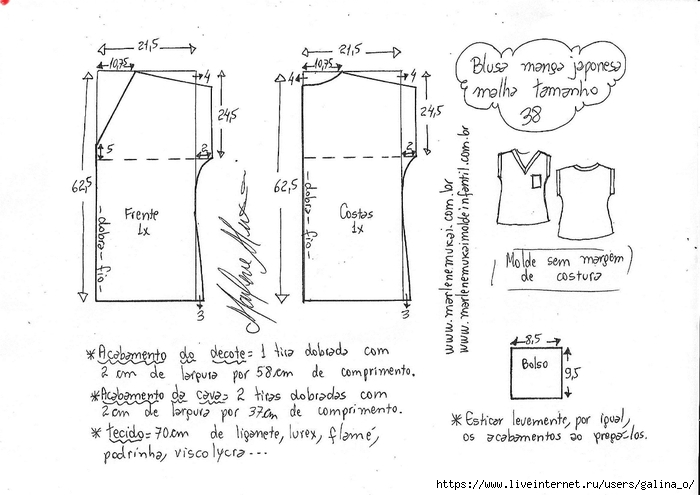 21,5
10,75
4
24,5
62,5
5
2
Frente
1x
-dobra- fio-
3
21,5
4
10,75
4
24,5
62,5
2
Costas
1x
-dobra- fio-
3
Marlene Mukai
www.marlenemukai.com.br
www.marlenemukaimoldeinfantil.com.br
Blusa manga japonesa
malha tamanho
38
Molde sem margem
de costura
8,5
Bolso
9,5
* Acabamento do decote= 1 tira dobrada com
2 cm de largura por 58cm de comprimento.
* Acabamento da cava= 2 tiras dobradas com
2cm de largura por 37cm de comprimento.
* tecido= 70cm de liganete, lurex, flamé,
podrinha, viscolycra...
* Esticar levemente, por igual,
os acabamentos ao pregá-los.
https://www.liveinternet.ru/users/galina_o/